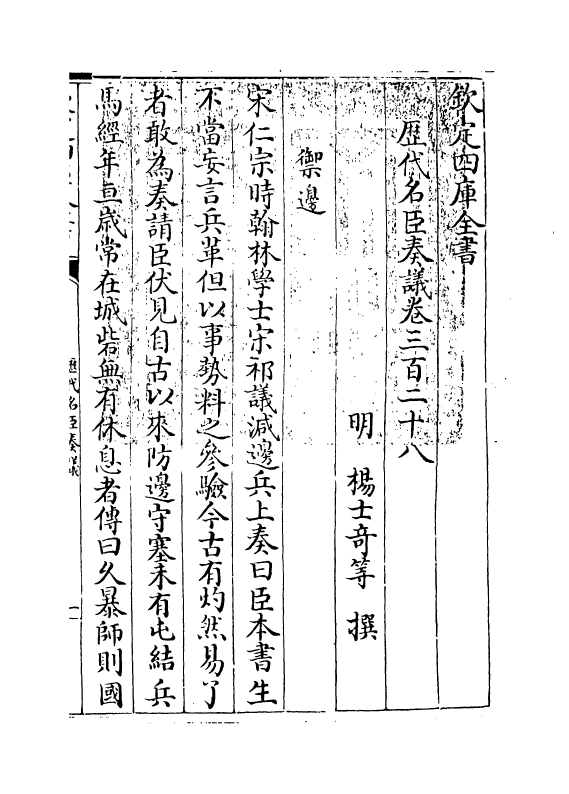 欽定四庫全書
歴代名臣奏議卷三百二十八
明 楊士奇等 撰
禦邊
宋仁宗時翰林學士宋祁議減邊兵上奏曰臣本書生
不當妄言兵革但以事勢料之參驗今古有灼然易了
者敢為奏請臣伏見自古以來防邊守塞未有屯結兵
馬經年亘歲常在城砦無有休息者傳曰久暴師則國
歴代名臣奏議
一